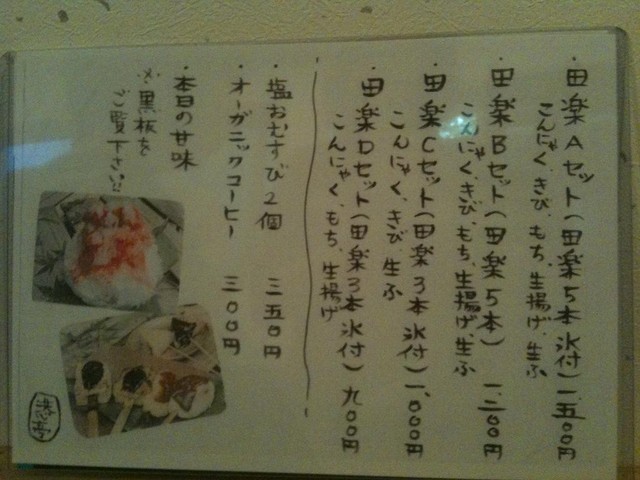 ・田楽Aセット(田楽5本氷付)一、五〇〇円
こんにゃく、きび、もち、生揚げ、生ふ
・田楽Bセット(田楽5本)一、二〇〇円
こんにゃく、きび、もち、生揚げ、生ふ
・田楽Cセット(田楽3本氷付)一、〇〇〇円
こんにゃく、きび、生ふ
・田楽Dセット(田楽3本氷付)九〇〇円
こんにゃく、もち、生揚げ
・塩おむすび2個 三五〇円
・オーガニックコーヒー 三〇〇円
・本日の甘味
※黒板を
ご覧下さい!!